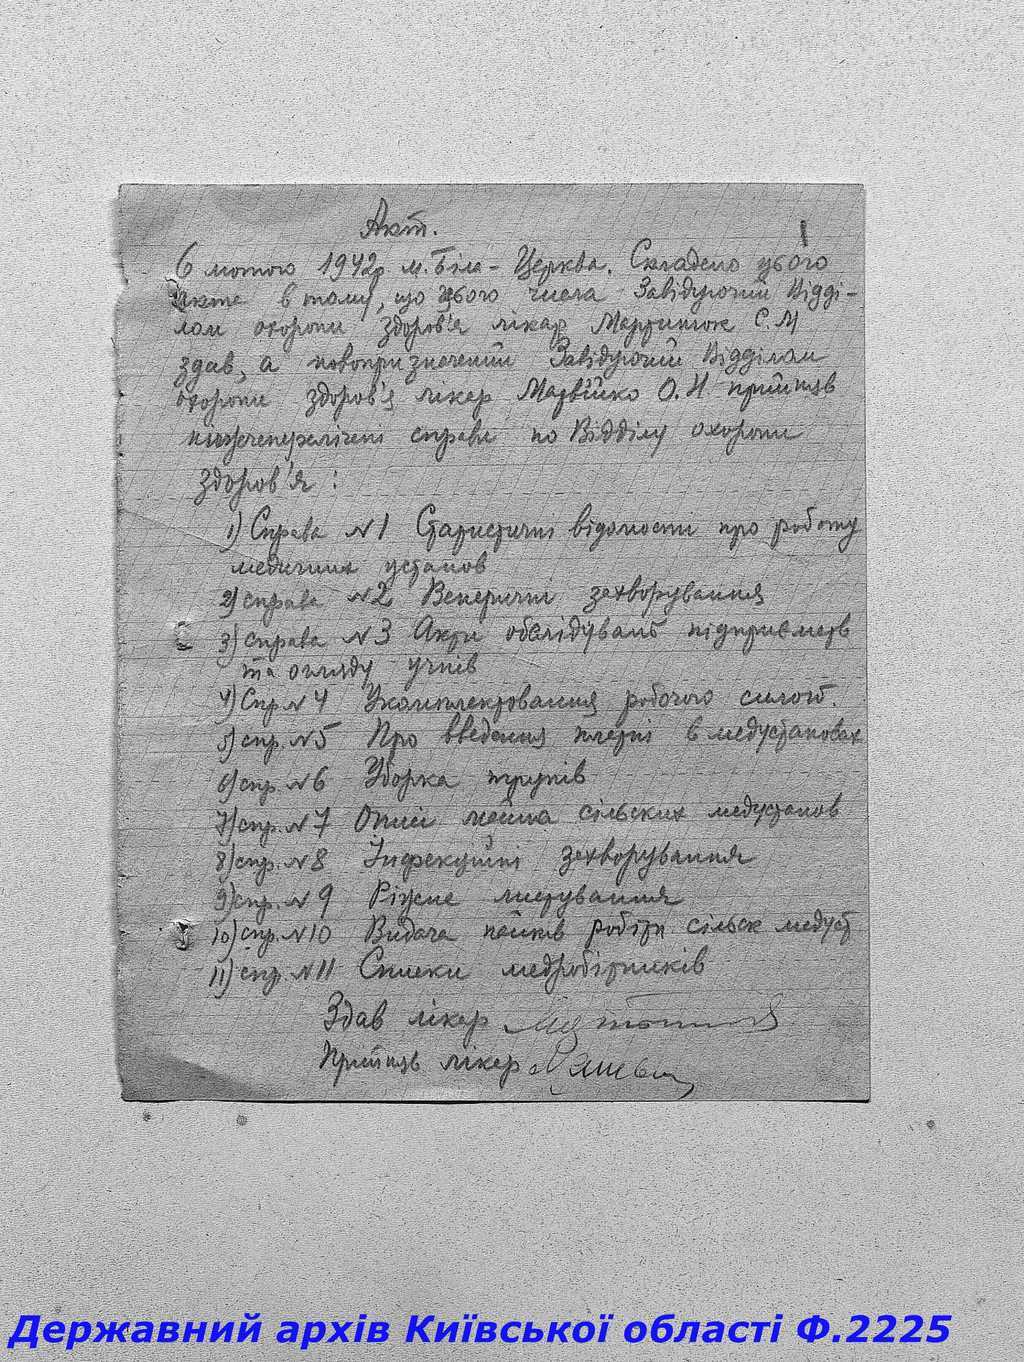 Акт.
6 лютого 1942р м. Біла-Церква. Складено цього
акта в тому, що цього числа Завідуючий Відді-
лом охорони здоров'я лікар Мартинюк С.М
здав, а новопризначений Завідуючий Відділом
охорони здоров'я лікар Матвійко О.Н прийняв
нижченерелічені справи по Відділу охорони
здоров'я :
1) Справа №1 Статистичні відомости про роботу
медичних установ
2) справа №2 Венеричні захворування
3) справа №3 Акти обслідувань підприємств
та огляду учнів
4) Спр №4 Укомплектовання робочою силою.
5) спр. №5 Про введення платні в медустановах
6) спр. №6 Уборка трупів
7) спр. №7 Описи майна сільских медустанов
8) спр. №8 Інфекційні захворування
9) спр. №9 Ріжне листування
10) спр. №10 Видача пайків робітн сільск медуст
11) спр. №11 Списки медробітників
Здав лікар
Прийняв лікар
Державний архів Київської області Ф.2225